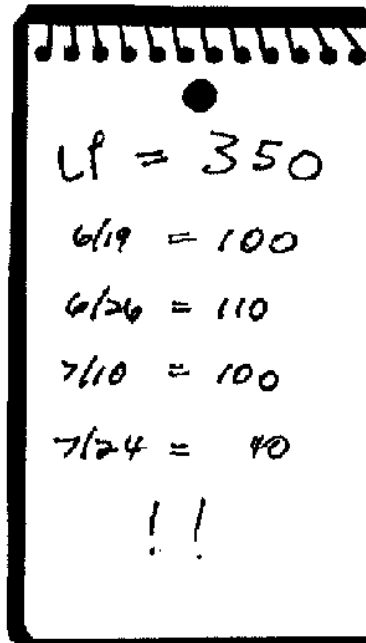 LP = 350
6/19 = 100
6/26 = 110
7/10 = 100
7/24 = 40
!!